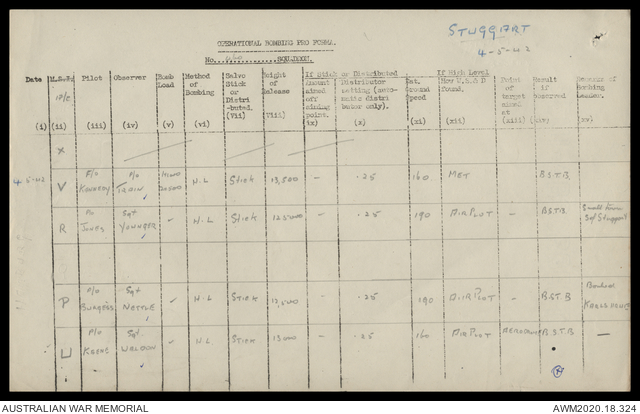 STUGGART
4-5-42
OPERATIONAL BOMBING PRO FORMA.
No. SQUADRON.
Date Pilot Observer Bomb Load Method of Bombing Salvo Stick or Distri-buted. Height of Release If Stick or Distributed Amount aimed off aiming point. Distributor setting (auto-matic distri butor only). Ground Speed If High Level How W.S.& D found. Point of target aimed at Result if observed Remarks of Bombing Leader.
(i) (ii) (iii) (iv) (v) (vi) (vii) (viii) (ix) (x) (xi) (xii) (xiii) (xiv) (xv)
X
4.5.42 V F/O KENNEDY P/O TRAIN N.L STICK 13,500 - .25 160 MET B.S.T.B
R P/O JONES Sgt YOUNGER ✓ N.L STICK 12500 - .25 190 AIRPLOT - B.S.T.B Small town
P P/O BURGESS Sgt NETTLE ✓ N.L STICK 12,500 .25 190 AIRPLOT - B.S.T.B Bombed
U P/O KEENE Sgt WALDON ✓ N.L STICK 13000 - .25 160 AIRPLOT AERODROME B.S.T.B
AUSTRALIAN WAR MEMORIAL
AWM2020.18.324